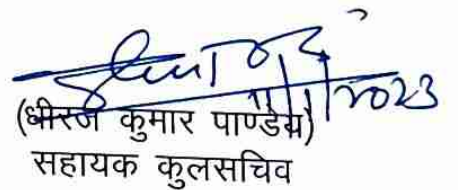 11/1/2023
(धीरज कुमार पाण्डेय)
सहायक कुलसचिव